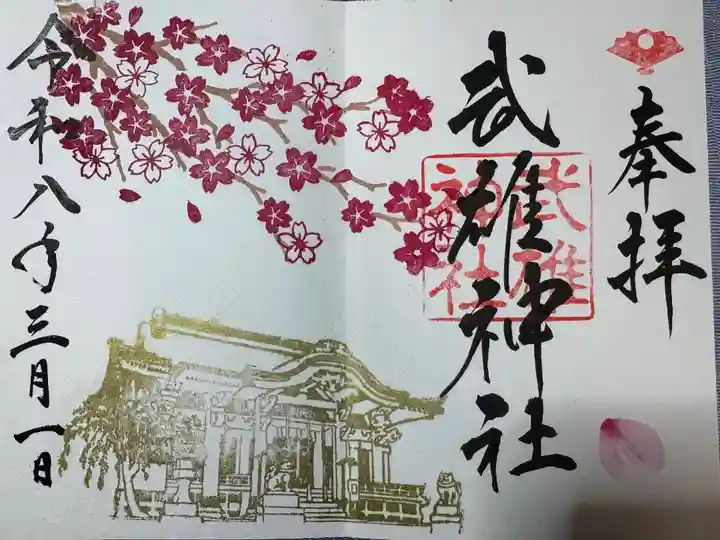 奉拝
武雄神社
武雄
神社
令和八年三月一日